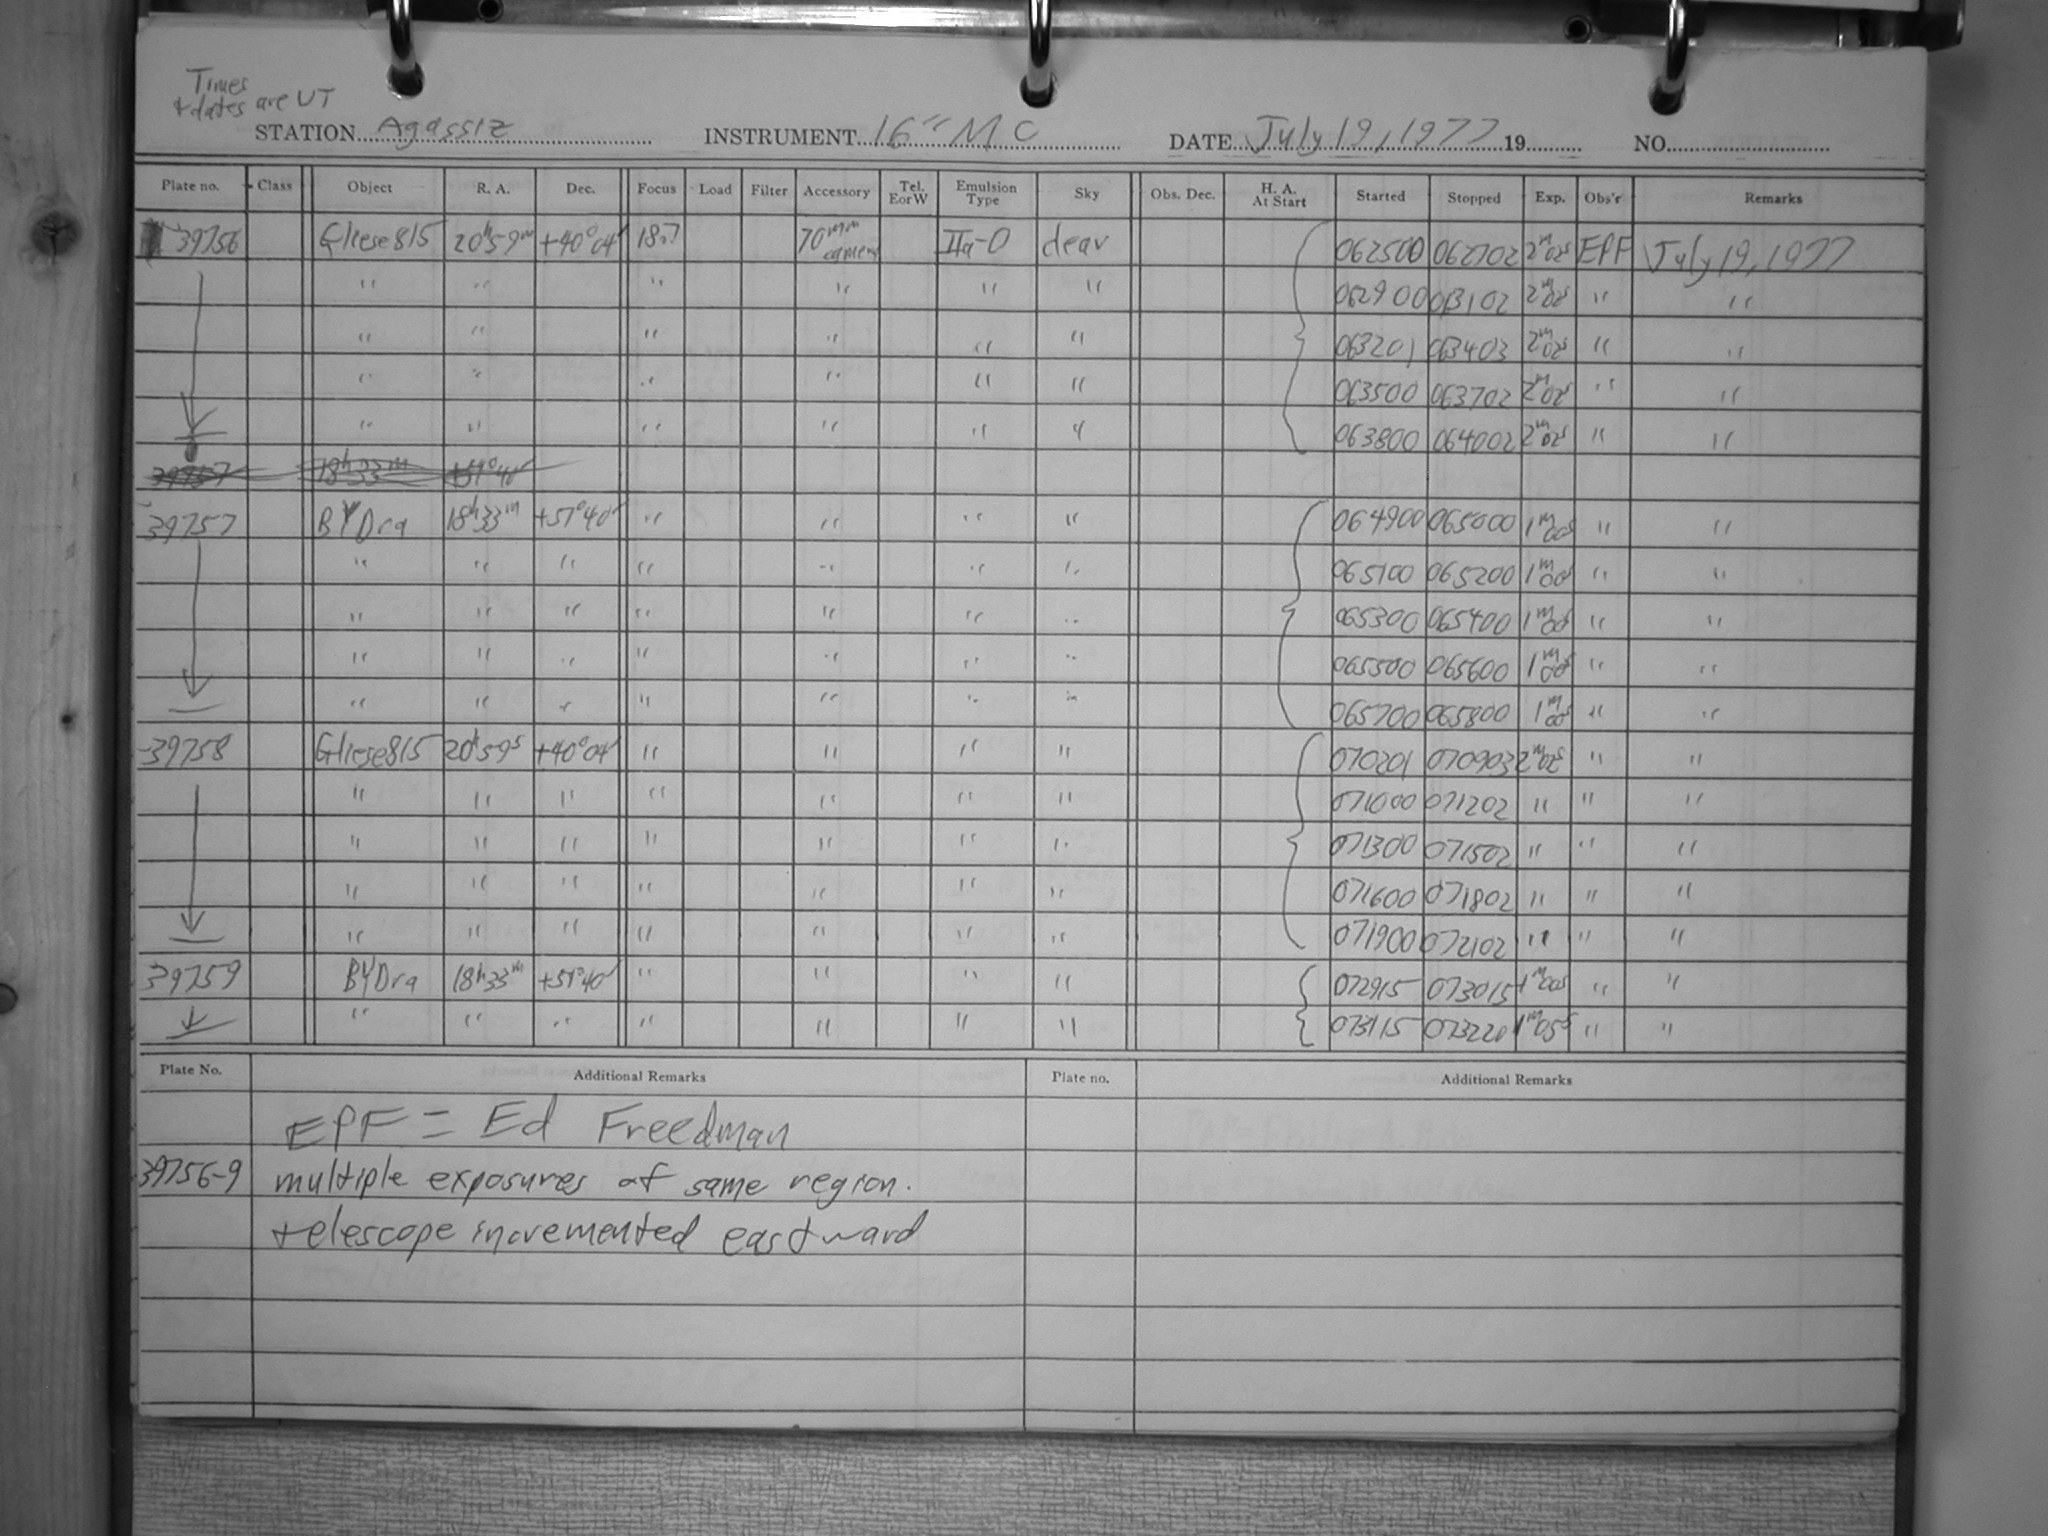 Times
+ dates are UT
STATION Agassiz INSTRUMENT 16" MC DATE July 19, 1977 19 NO.
Plate no. Class Object R. A. Dec. Focus Load Filter Accessory Tel. EorW Emulsion Type Sky Obs. Dec. H. A. At Start Started Stopped Exp. Obs'r Remarks
39756 Gliese 815 20h59m +40°04' 18.7 70mm camera IIa-O clear 062500 062702 2m02s EPF July 19, 1977
" " " " " " 062900 063102 2m02s " "
" " " " " " 063201 063403 2m02s " "
" " " " " " 063500 063702 2m02s " "
" " " " " " 063800 064002 2m02s " "
39757 18h33m +51°40'
39757 BY Dra 18h33m +51°40' " " " " 064900 065000 1m00s " "
" " " " " " " 065100 065200 1m00s " "
" " " " " " " 065300 065400 1m00s " "
" " " " " " " 065500 065600 1m00s " "
" " " " " " " 065700 065800 1m00s " "
39758 Gliese 815 20h59s +40°04' " " " " 070201 070903 2m02s " "
" " " " " " " 071000 071202 " " "
" " " " " " " 071300 071502 " " "
" " " " " " " 071600 071802 " " "
" " " " " " " 071900 072102 " " "
39759 BY Dra 18h33m +51°40' " " " " 072915 073015 1m00s " "
" " " " " " " 073115 073220 1m05s " "
Plate No. Additional Remarks Plate no. Additional Remarks
EPF = Ed Freedman
39756-9 multiple exposures of same region.
telescope incremented eastward